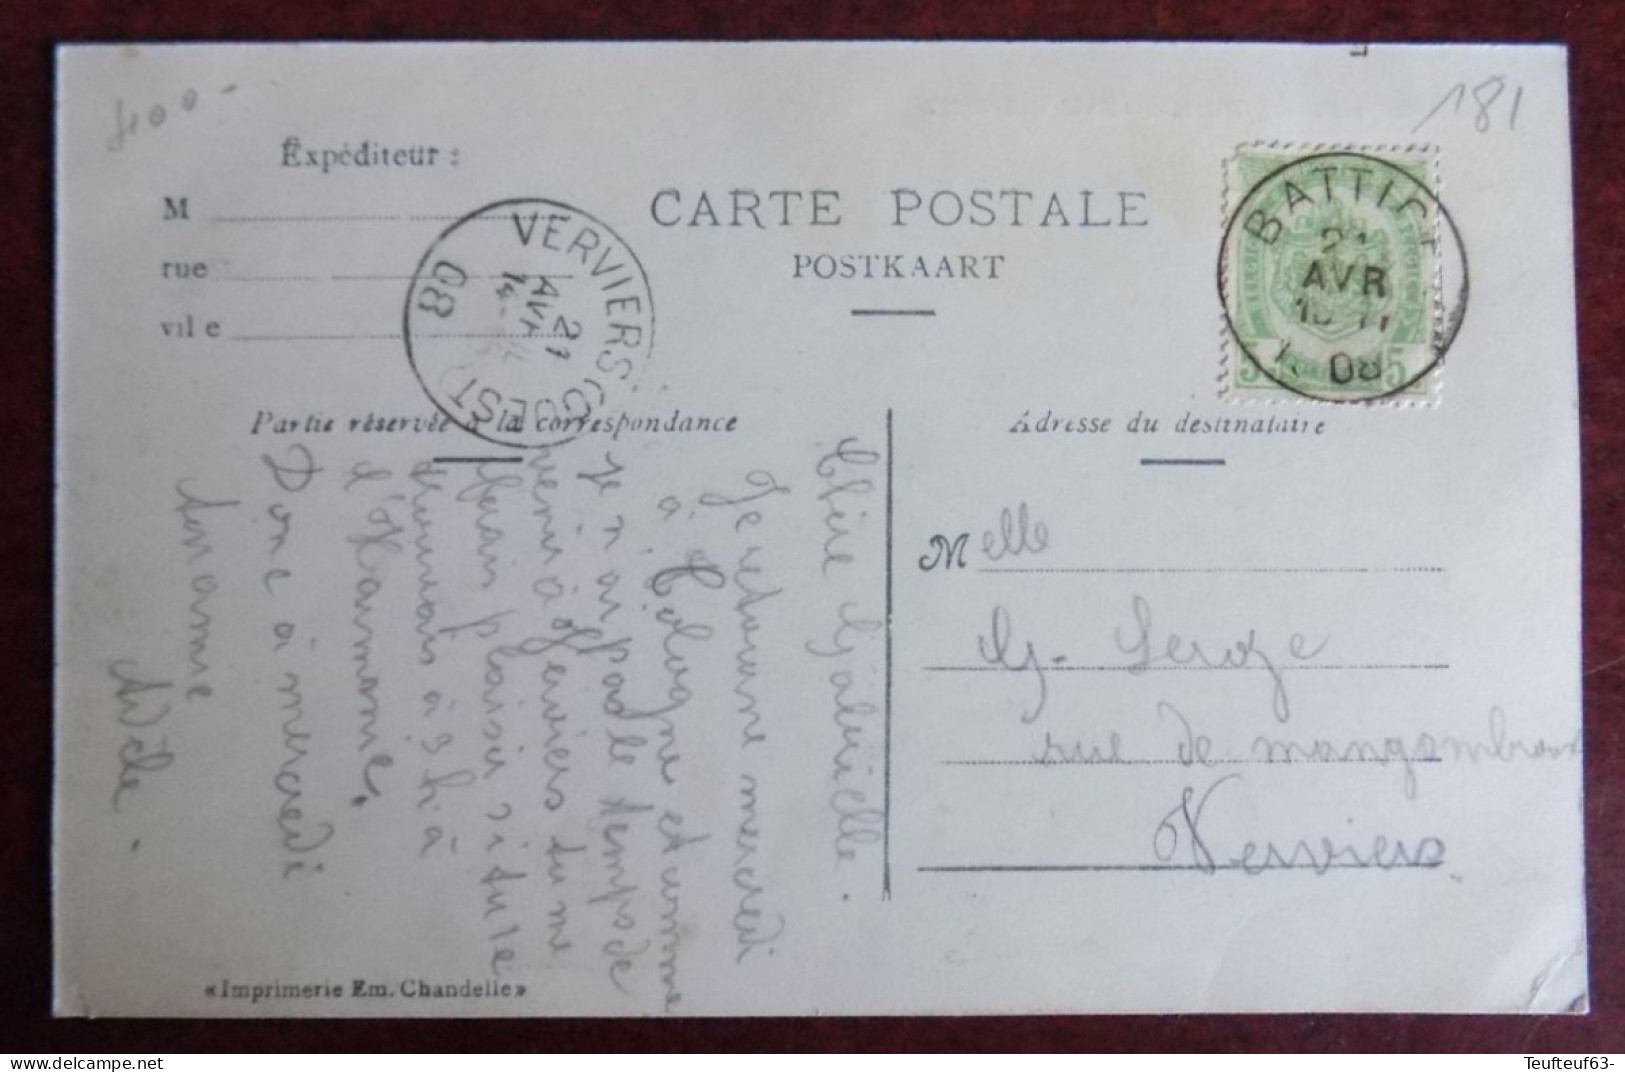 400-
181
Expéditeur :
M
rue
ville
CARTE POSTALE
POSTKAART
VERVIERS (OUEST)
21
AVR
14
08
BATTICE
21
AVR
08
5 5
Partie réservée à la correspondance
Adresse du destinataire
Chère Gabrielle.
Je retourne mercredi
à Cologne et comme
je n'ai pas le temps de
venir à Verviers tu me
ferais plaisir si tu te
trouvais à 3 h à
l'Harmonie.
Donc à mercredi
ton amie
Melle
G. Leroze
rue de mangombroux
Verviers
«Imprimerie Em. Chandelle»
Teufteuf63-